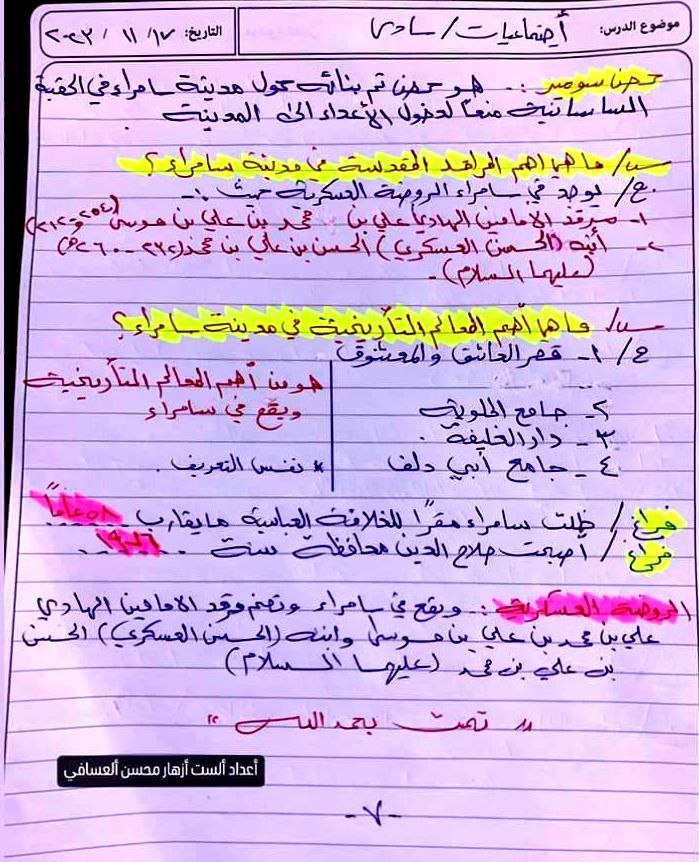 موضوع الدرس: أجتماعيات / سادس
التاريخ: ١٧ / ١١ / ٢٠٢٣
حصن سومير :. هو حصن تم بنائه حول مدينة سامراء في الحقبة
الساسانية منعاً لدخول الأعداء الى المدينة
س/ ما هي اهم المراقد المقدسة في مدينة سامراء؟
ج/ يوجد في سامراء الروضة العسكرية حيث :-
١- مرقد الامامين الهادي علي بن محمد بن علي بن موسى (٢١٢-٢٥٤هـ)
٢- أبنه (الحسن العسكري) الحسن بن علي بن محمد (٢٣٢-٢٦٠هـ)
(عليهما السلام).
س/ ما هي أهم المعالم التأريخية في مدينة سامراء؟
ج/ ١- قصر العاشق والمعشوق
٢- جامع الملوية
٣- دار الخليفة .
٤- جامع أبي دلف
هو من أهم المعالم التأريخية
ويقع في سامراء
* نفس التعريف .
فراغ / ظلت سامراء مقرًا للخلافة العباسية ما يقارب ٥٨ عاماً
فراغ / أصبحت صلاح الدين محافظة سنة ١٩٧٦
الروضة العسكرية :. ويقع في سامراء وتضم مرقد الامامين الهادي
علي بن محمد بن علي بن موسى وابنه (الحسن العسكري) الحسن
بن علي بن محمد (عليهما السلام)
" تمت بحمد الله "
أعداد ألست أزهار محسن ألعسافي
-٧-